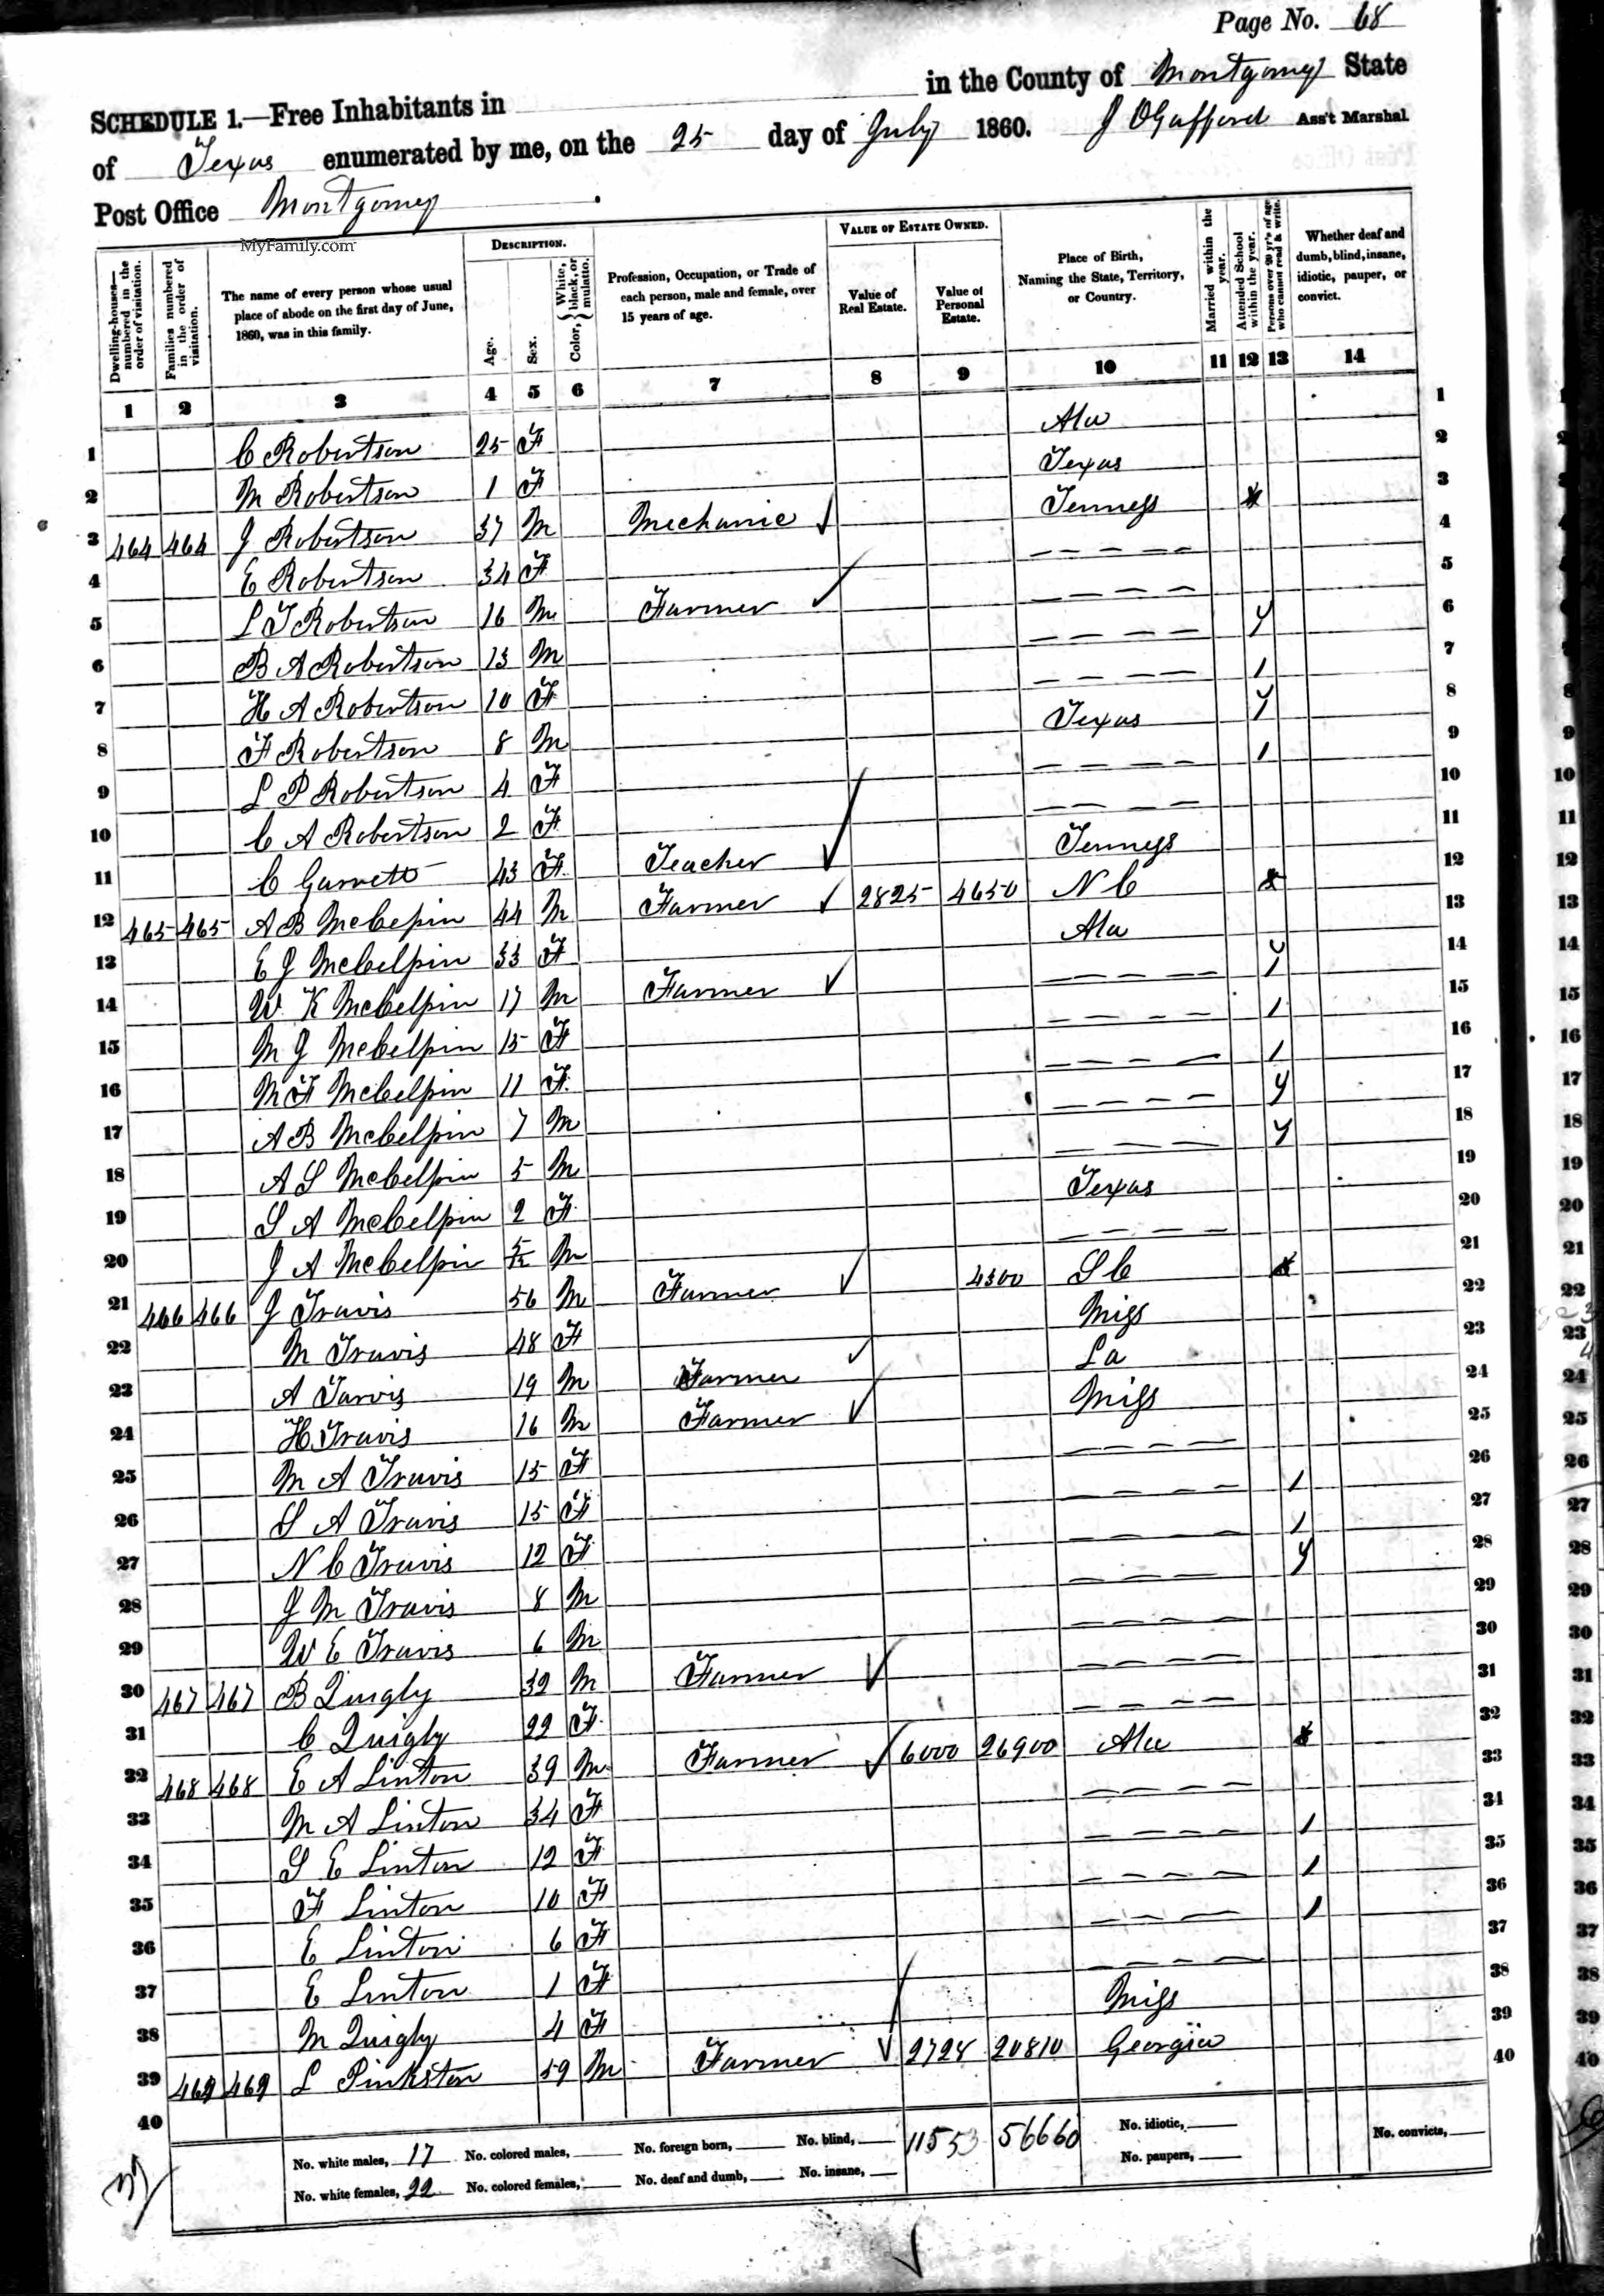 Page No. 68
SCHEDULE 1.—Free Inhabitants in in the County of Montgomery State
of Texas enumerated by me, on the 25 day of July 1860. J O Gafford Ass't Marshal
Post Office Montgomery
MyFamily.com
Dwelling-houses—numbered in the order of visitation.
Families numbered in the order of visitation.
The name of every person whose usual place of abode on the first day of June, 1860, was in this family.
DESCRIPTION.
Age.
Sex.
Color, White, black, or mulatto.
Profession, Occupation, or Trade of each person, male and female, over 15 years of age.
VALUE OF ESTATE OWNED.
Value of Real Estate.
Value of Personal Estate.
Place of Birth, Naming the State, Territory, or Country.
Married within the year.
Attended School within the year.
Persons over 20 y'rs of age who cannot read & write.
Whether deaf and dumb, blind, insane, idiotic, pauper, or convict.
1 2 3 4 5 6 7 8 9 10 11 12 13 14
1 C Robertson 25 F Ala 1
2 M Robertson 1 F Texas 2
3 464 464 J Robertson 37 M Mechanic Tenness 3
4 E Robertson 34 F — — — — 4
5 L T Robertson 16 M Farmer — — — — 5
6 B A Robertson 13 M — — — — 6
7 H A Robertson 10 F — — — — 7
8 F Robertson 8 M Texas 8
9 L P Robertson 4 F — — — — 9
10 C A Robertson 2 F — — — — 10
11 C Garrett 43 F Teacher Tenness 11
12 465 465 A B McCepin 44 M Farmer 2825 4650 N C 12
13 E J McCelpin 33 F Ala 13
14 W K McCelpin 17 M Farmer — — — — 14
15 M J McCelpin 15 F — — — — 15
16 M F McCelpin 11 F — — — — 16
17 A B McCelpin 7 M — — — — 17
18 A S McCelpin 5 M — — — 18
19 S A McCelpin 2 F Texas 19
20 J A McCelpin 5/12 M — — — — 20
21 466 466 J Travis 56 M Farmer 4300 S C 21
22 M Travis 48 F Miss 22
23 A Tarvis 19 M Farmer La 23
24 H Travis 16 M Farmer Miss 24
25 M A Travis 15 F — — — — 25
26 S A Travis 15 F — — — — 26
27 N C Travis 12 F — — — — 27
28 J M Travis 8 M — — — — 28
29 W E Travis 6 M — — — — 29
30 467 467 B Quigly 32 M Farmer — — — — 30
31 C Quigly 22 F — — — — 31
32 468 468 E A Linton 39 M Farmer 6000 26900 Ala 32
33 M A Linton 34 F — — — — 33
34 S E Linton 12 F — — — — 34
35 F Linton 10 F — — — — 35
36 E Linton 6 F — — — — 36
37 E Linton 1 F — — — — 37
38 M Quigly 4 F Miss 38
39 469 469 L Pinkston 59 M Farmer 2728 20810 Georgia 39
40 40
No. white males, 17 No. colored males, No. foreign born, No. blind, 11553 56660 No. idiotic, No. convicts,
No. white females, 22 No. colored females, No. deaf and dumb, No. insane, No. paupers,